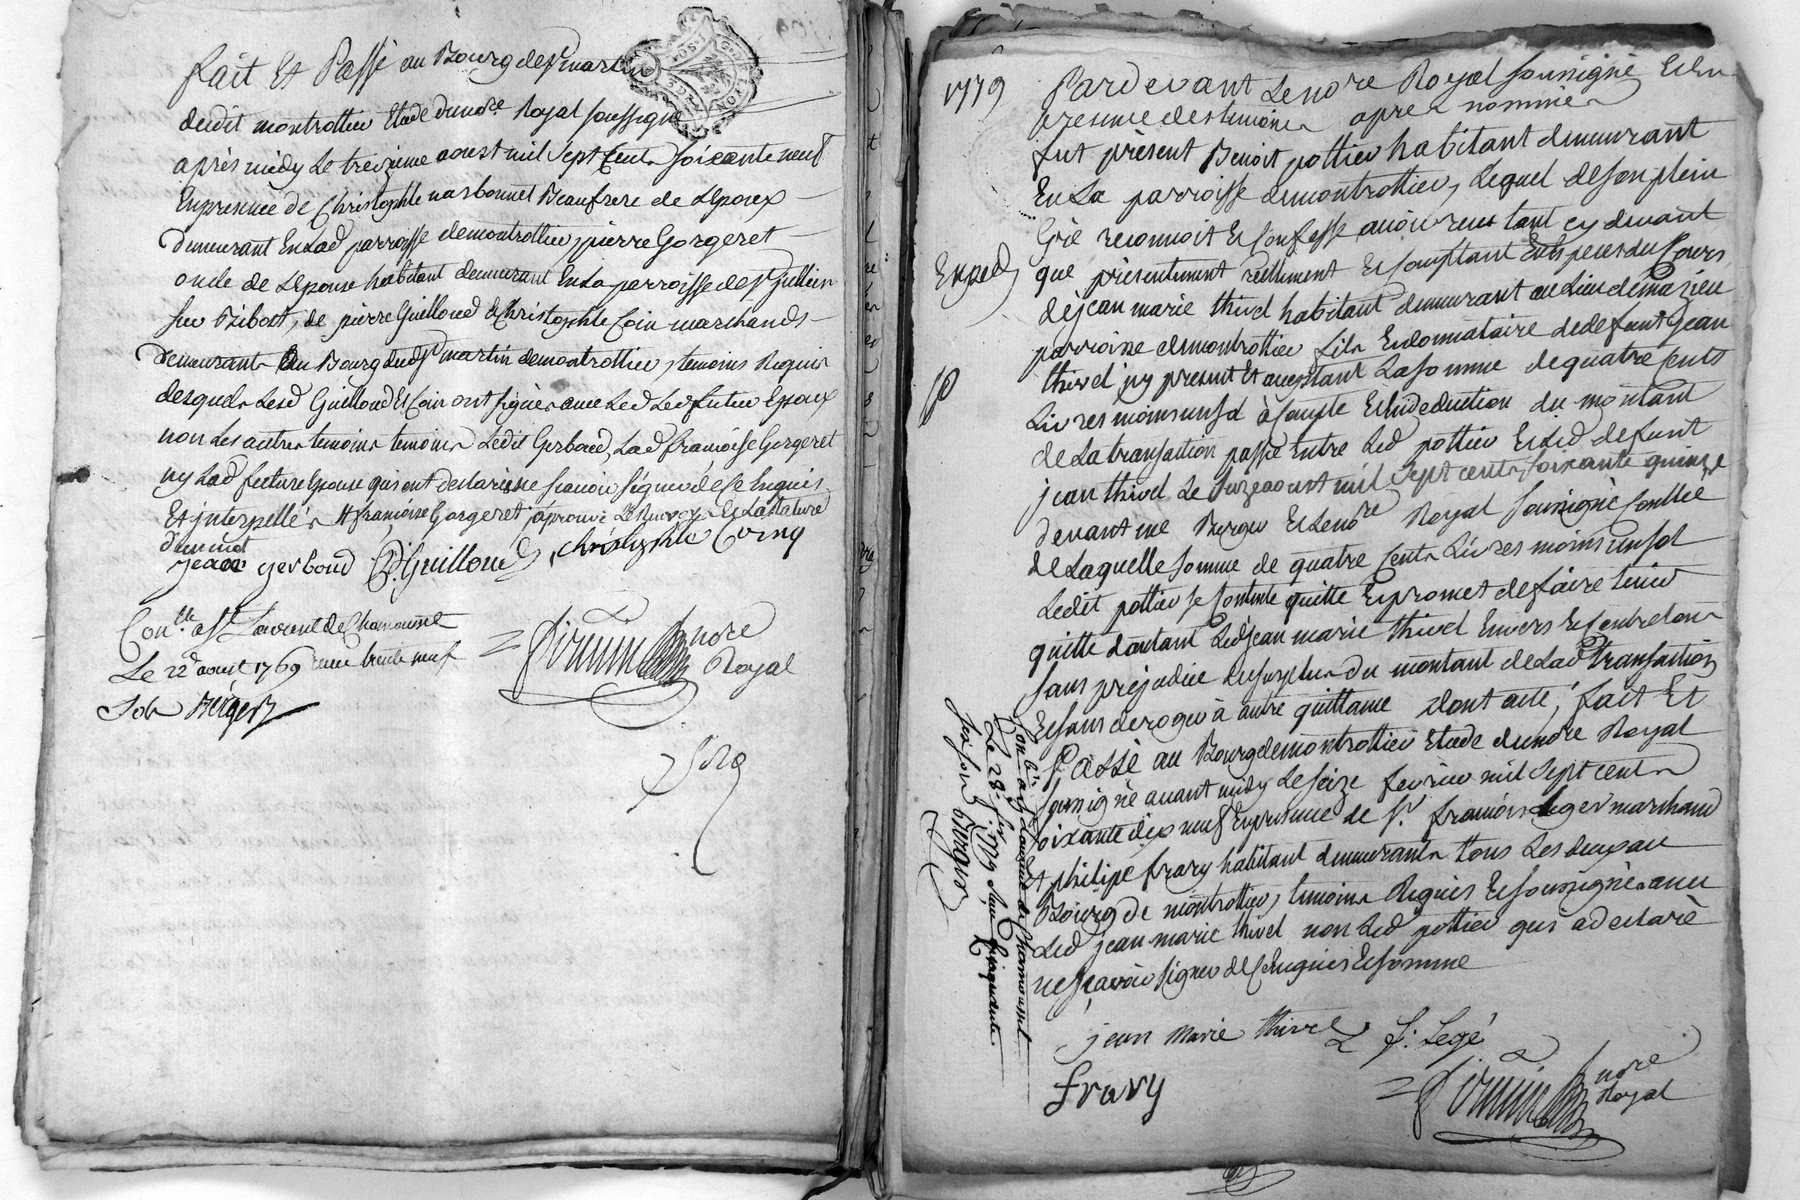 fait Et Passé au Bourg de St martin
dudit montrottier Etude du nore. Royal soussigné
après midy Le treizieme aoust mil sept Cents soixante neuf
En presence de Christophle narbonnet Beaufrere de L'epoux
demeurant En Lad parroisse demontrottier, pierre Gorgeret
oncle de L'epouse habitant demeurant En La parroisse de St jullien
sur Bibost, de pierre Guilloud & Christophle Coin marchands
demeurants au Bourg dud St martin demontrottier, temoins Requis
desquels Lesd Guilloud Et Coin ont signés avec Led Led futur Epoux
non Les autres temoins temoins Ledit Gerboud, Lad françoise Gorgeret
ny Lad future Epouse qui ont declaré ne sçavoir signer de ce Enquis
Et interpellés # françoise Gorgeret, aprouvé Le Renvoy & La Rature
d'un mot
jean gerboud P. Guilloud christophle Coing
Con.lle a St Laurent de Chamousset
Le 22d aoust 1769 reçu trente neuf
Sols Berger
nore
Royal
1779
Expéd
Pardevant Le nore Royal soussigné & En
presence des temoins après nommés
fut présent Benoit pottier habitant demeurant
En La parroisse demontrottier, Lequel de son plein
Gré reconnoit & Confesse avoir reçu tant cy devant
que présentement réellement & Comptant En Especes du Cours
de jean marie thivel habitant demeurant au Lieu de masieu
parroisse demontrottier fils En donnataire de defunt jean
thivel icy present Et acceptant La somme de quatre Cents
Livres moins un sol à compte & En deduction du montant
de La transaction passée Entre Led pottier & Led defunt
jean thivel Le onze aoust mil sept cents soixante quinze
devant me Berger & Le nore Royal soussigné Conllée
de Laquelle somme de quatre Cents Livres moins un sol
Ledit pottier se Contente quitte & promet de faire tenir
quitte d'autant Led jean marie thivel Envers & Contre tous
sans préjudice du surplus du montant de Lad transaction
& sans deroger à autre quittance dont acte, fait Et
Passé au Bourg demontrottier Etude du nore Royal
soussigné avant midy Le seize fevrier mil sept cents
soixante dix neuf En presence de Sr. françois Leger marchand
& philipe frary habitant demeurants tous Les deux au
Bourg de montrottier, temoins Requis & soussignés avec
Led jean marie thivel non Led pottier qui a declaré
ne sçavoir signer de ce Enquis & sommé
jean marie thivel f: Legé
frary
nore
Royal
Con.lé a St Laurent de Chamousset
Le 28 fer. 1779